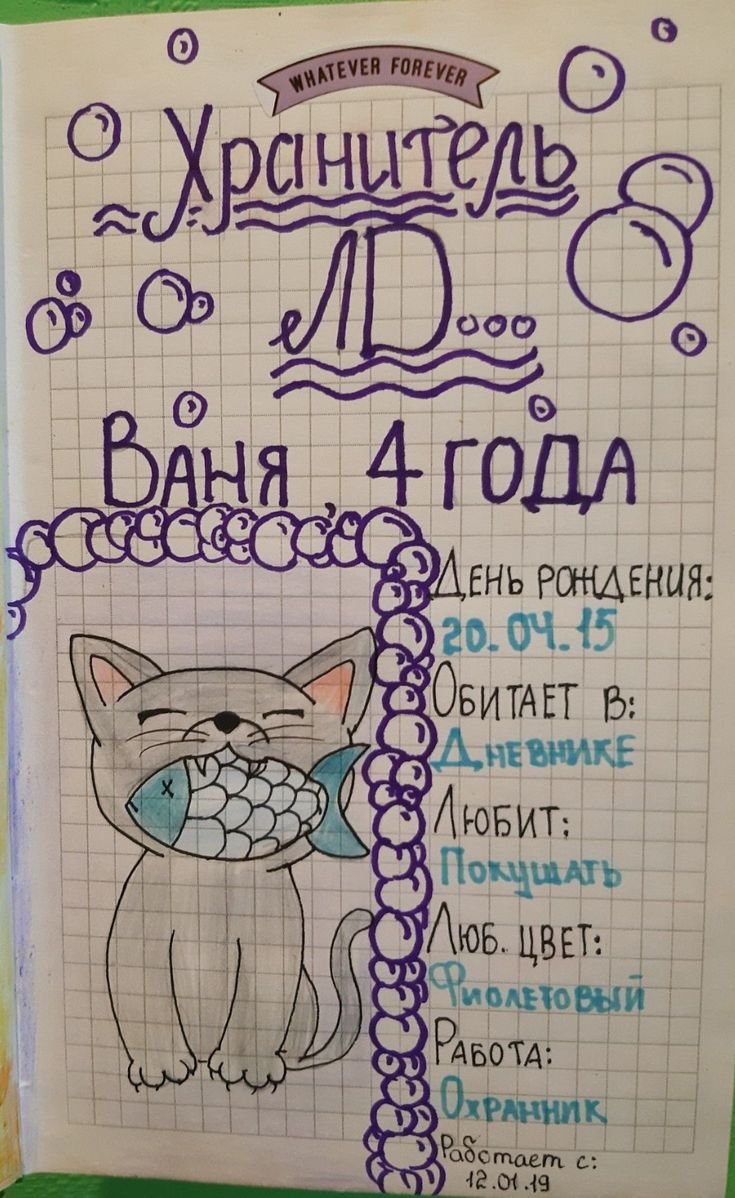 WHATEVER FOREVER
Хранитель
ЛД...
Ваня, 4 года
День рождения:
20.04.15
Обитает в:
Дневнике
Любит:
Покушать
Люб. цвет:
Фиолетовый
Работа:
Охранник
Работает с:
12.01.19